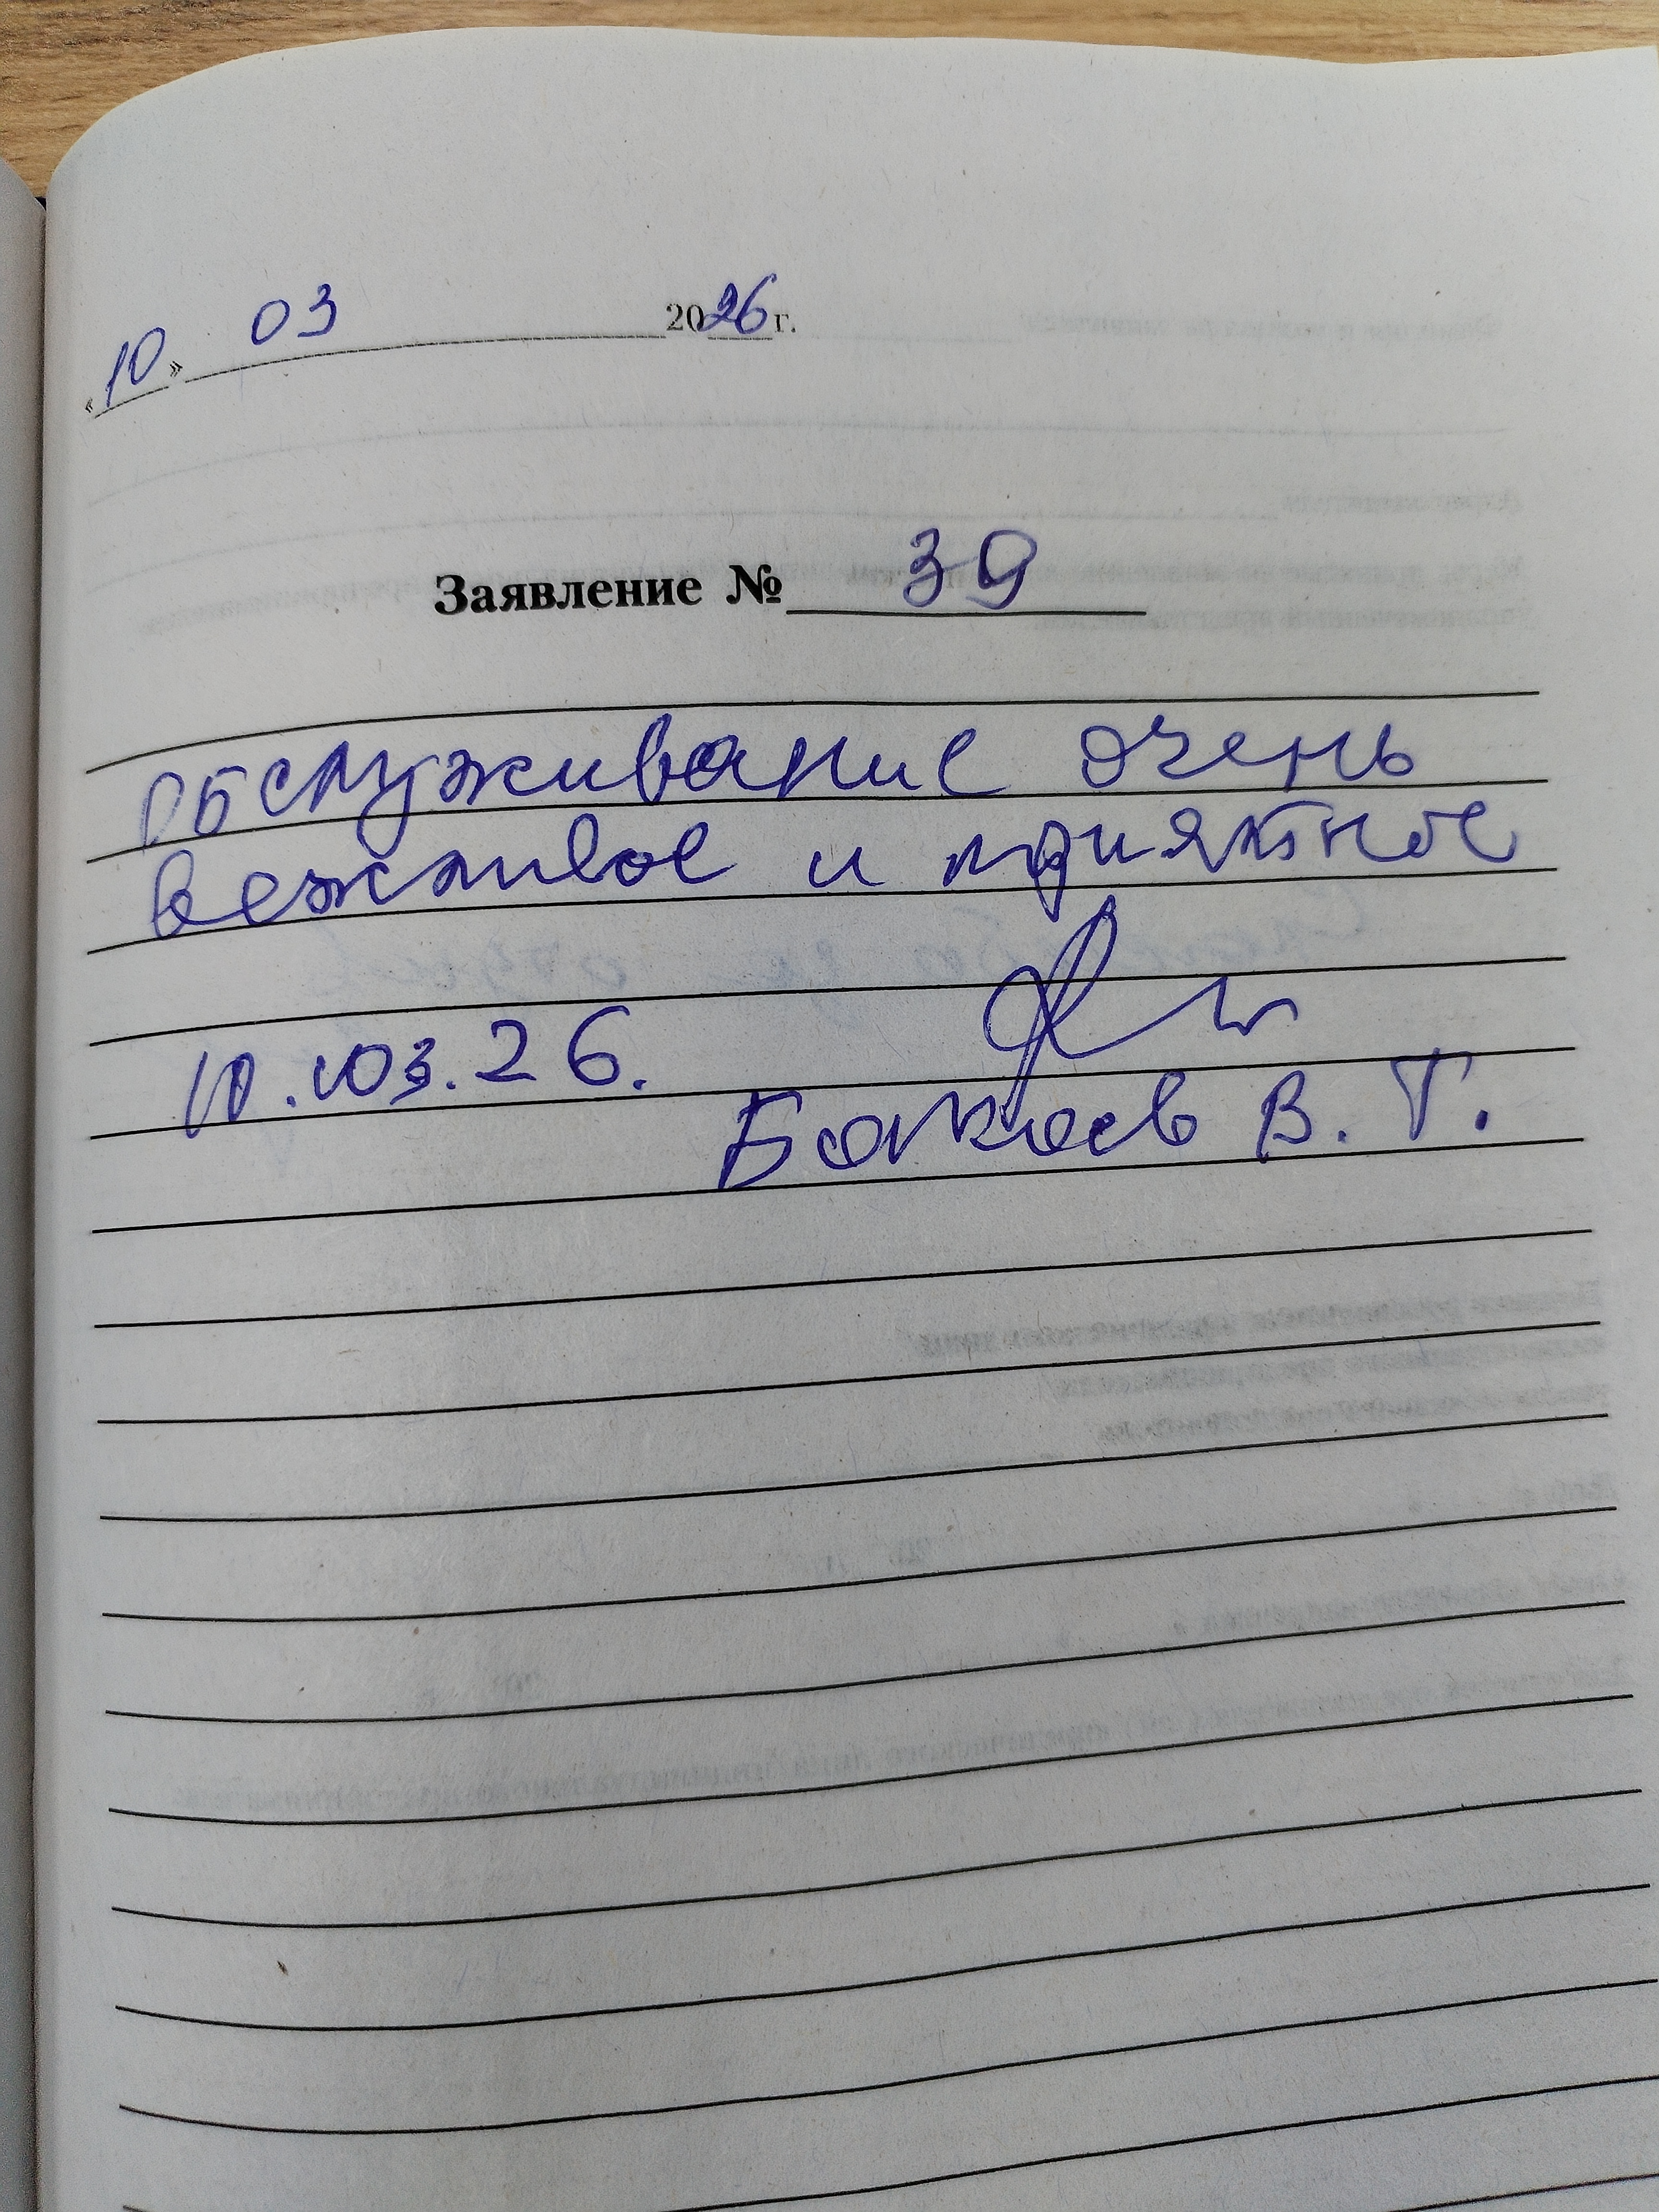 «10» 03 2026 г.
Заявление № 39
Обслуживание очень
вежливое и приятное
10.03.26.
Бокоев В. Т.